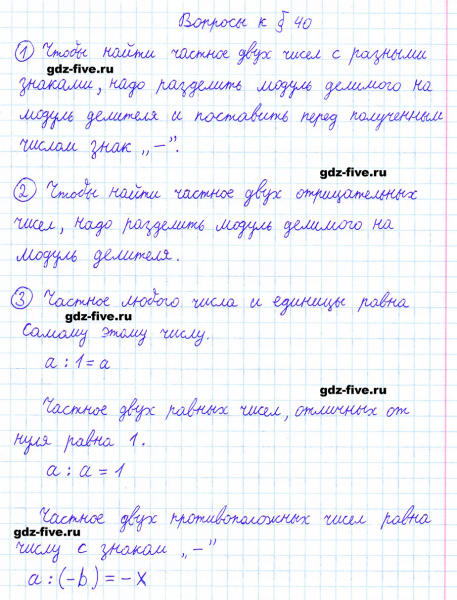 Вопросы к § 40
① Чтобы найти частное двух чисел с разными
gdz-five.ru
знаками, надо разделить модуль делимого на
модуль делителя и поставить перед полученным
числом знак „—”.
gdz-five.ru
② Чтобы найти частное двух отрицательных
чисел, надо разделить модуль делимого на
модуль делителя.
③ Частное любого числа и единицы равна
gdz-five.ru
самому этому числу.
a : 1 = a
gdz-five.ru
Частное двух равных чисел, отличных от
нуля равна 1.
a : a = 1
Частное двух противоположных чисел равна
gdz-five.ru
числу с знаком „—”
a : (-b) = - x